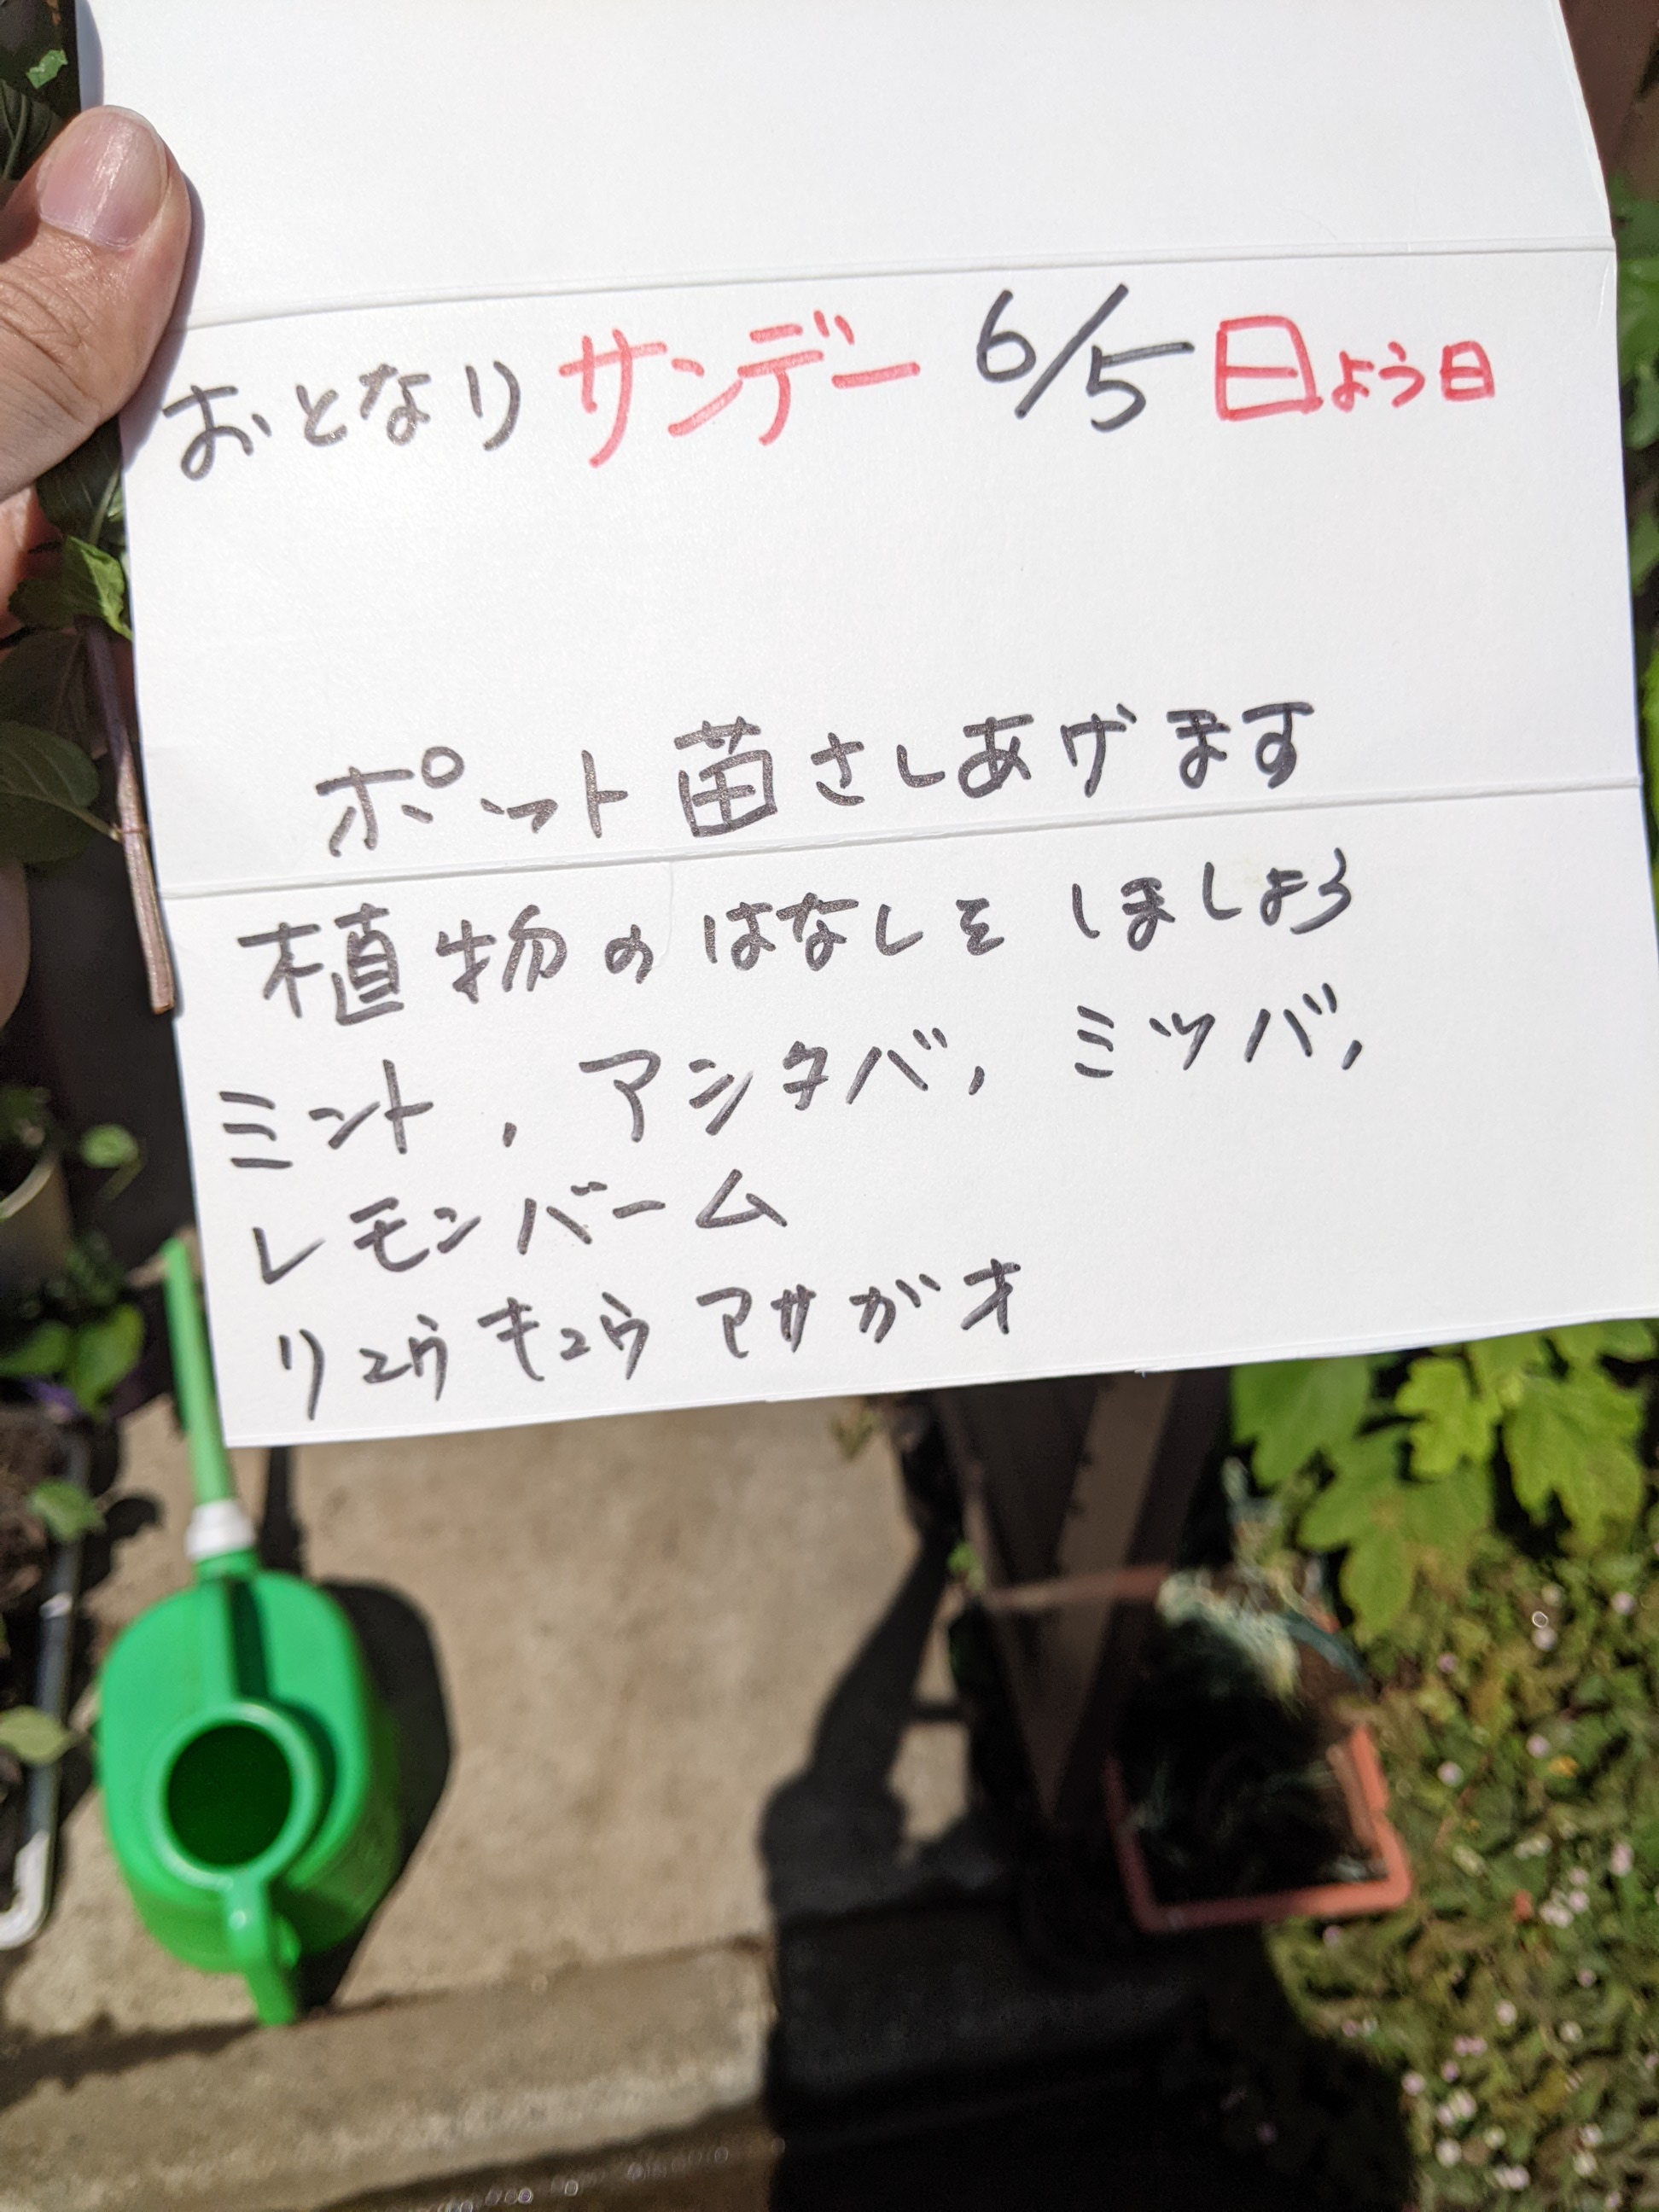 おとなりサンデー 6/5 日よう日
ポット苗さしあげます
植物のはなしをしましょう
ミント, アシタバ, ミツバ,
レモンバーム
リュウキュウアサガオ